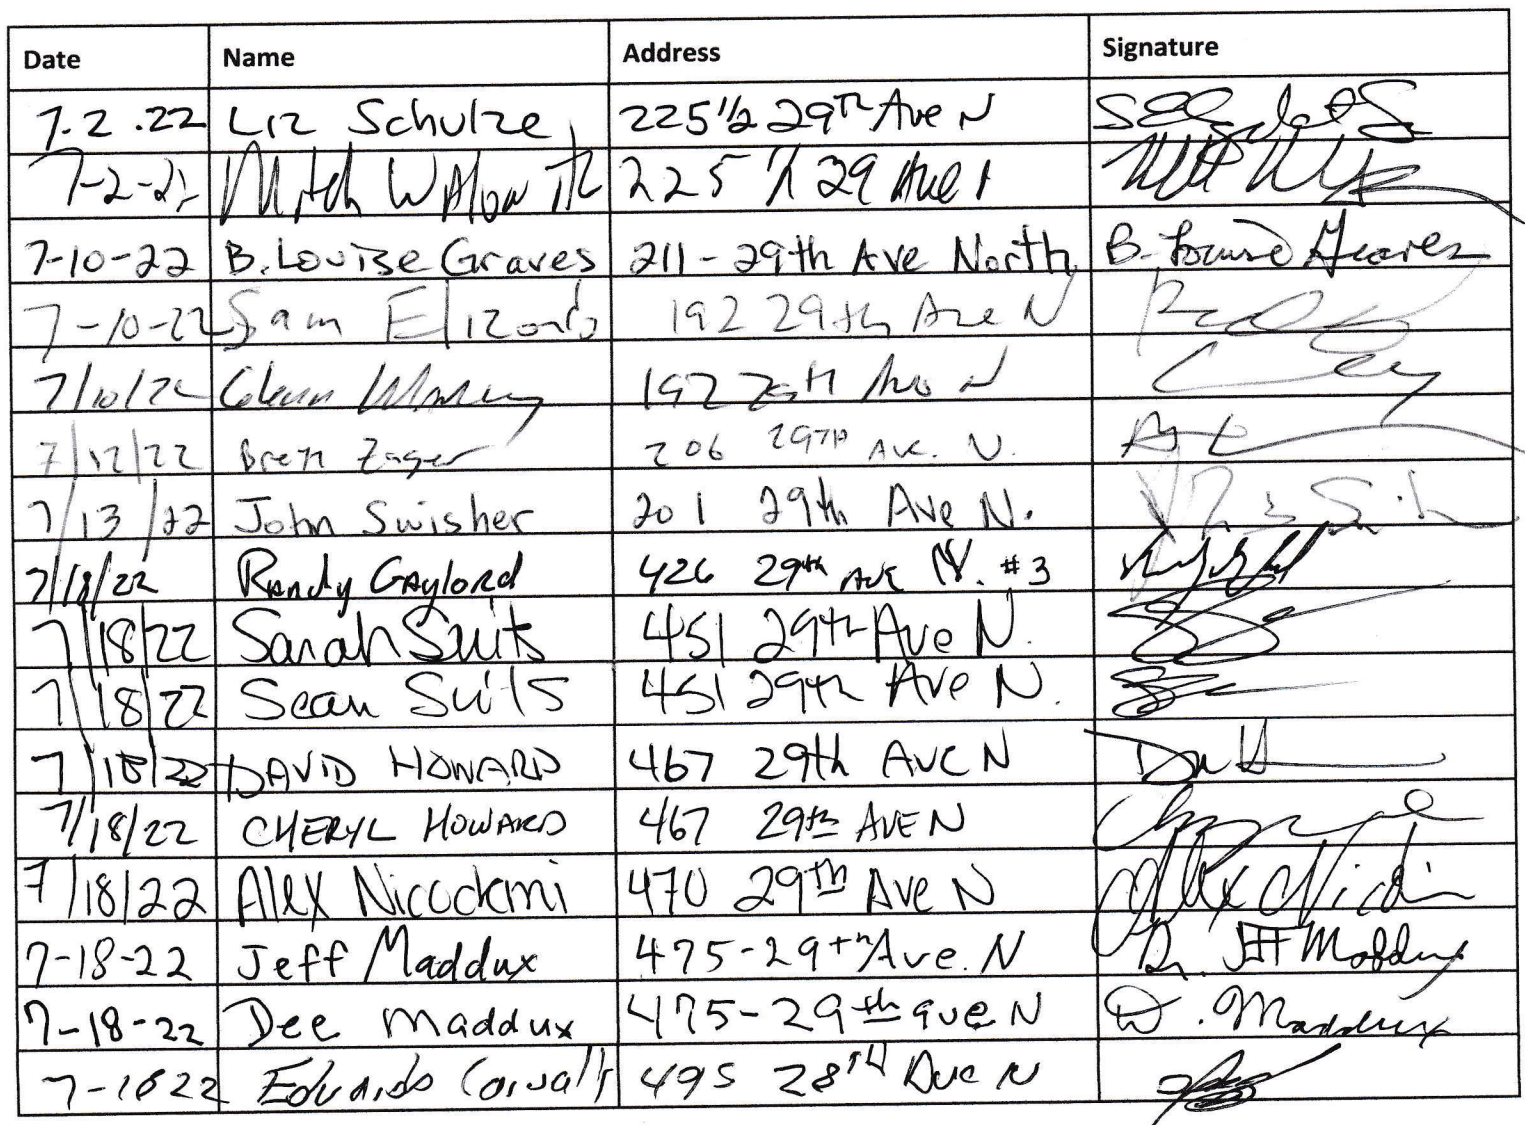 Date Name Address Signature
7.2.22 Liz Schulze 225 1/2 29Th Ave N
7-2-22 Mitch 225 1/2 29 Ave
7-10-22 B. Louise Graves 211-29th Ave North B. Louise Graves
7-10-22 Sam Elizondo 192 29th Ave N
7/10/22 Glenn 192 29th Ave N
7/12/22 Brett Zager 206 29TH AVE. N.
7/13/22 John Swisher 201 29th Ave N.
7/18/22 Randy Gaylord 426 29th Ave N. #3
7/18/22 Sarah Suits 451 29th Ave N.
7/18/22 Sean Suits 451 29th Ave N.
7/18/22 DAVID HOWARD 467 29th AVE N
7/18/22 CHERYL HOWARD 467 29th AVE N
7/18/22 Alex Nicodemi 470 29th Ave N
7-18-22 Jeff Maddux 475-29th Ave. N Dr. Jeff Maddux
7-18-22 Dee Maddux 475-29th ave N D. Maddux
7-18 22 Eduardo 495 28TH Ave N